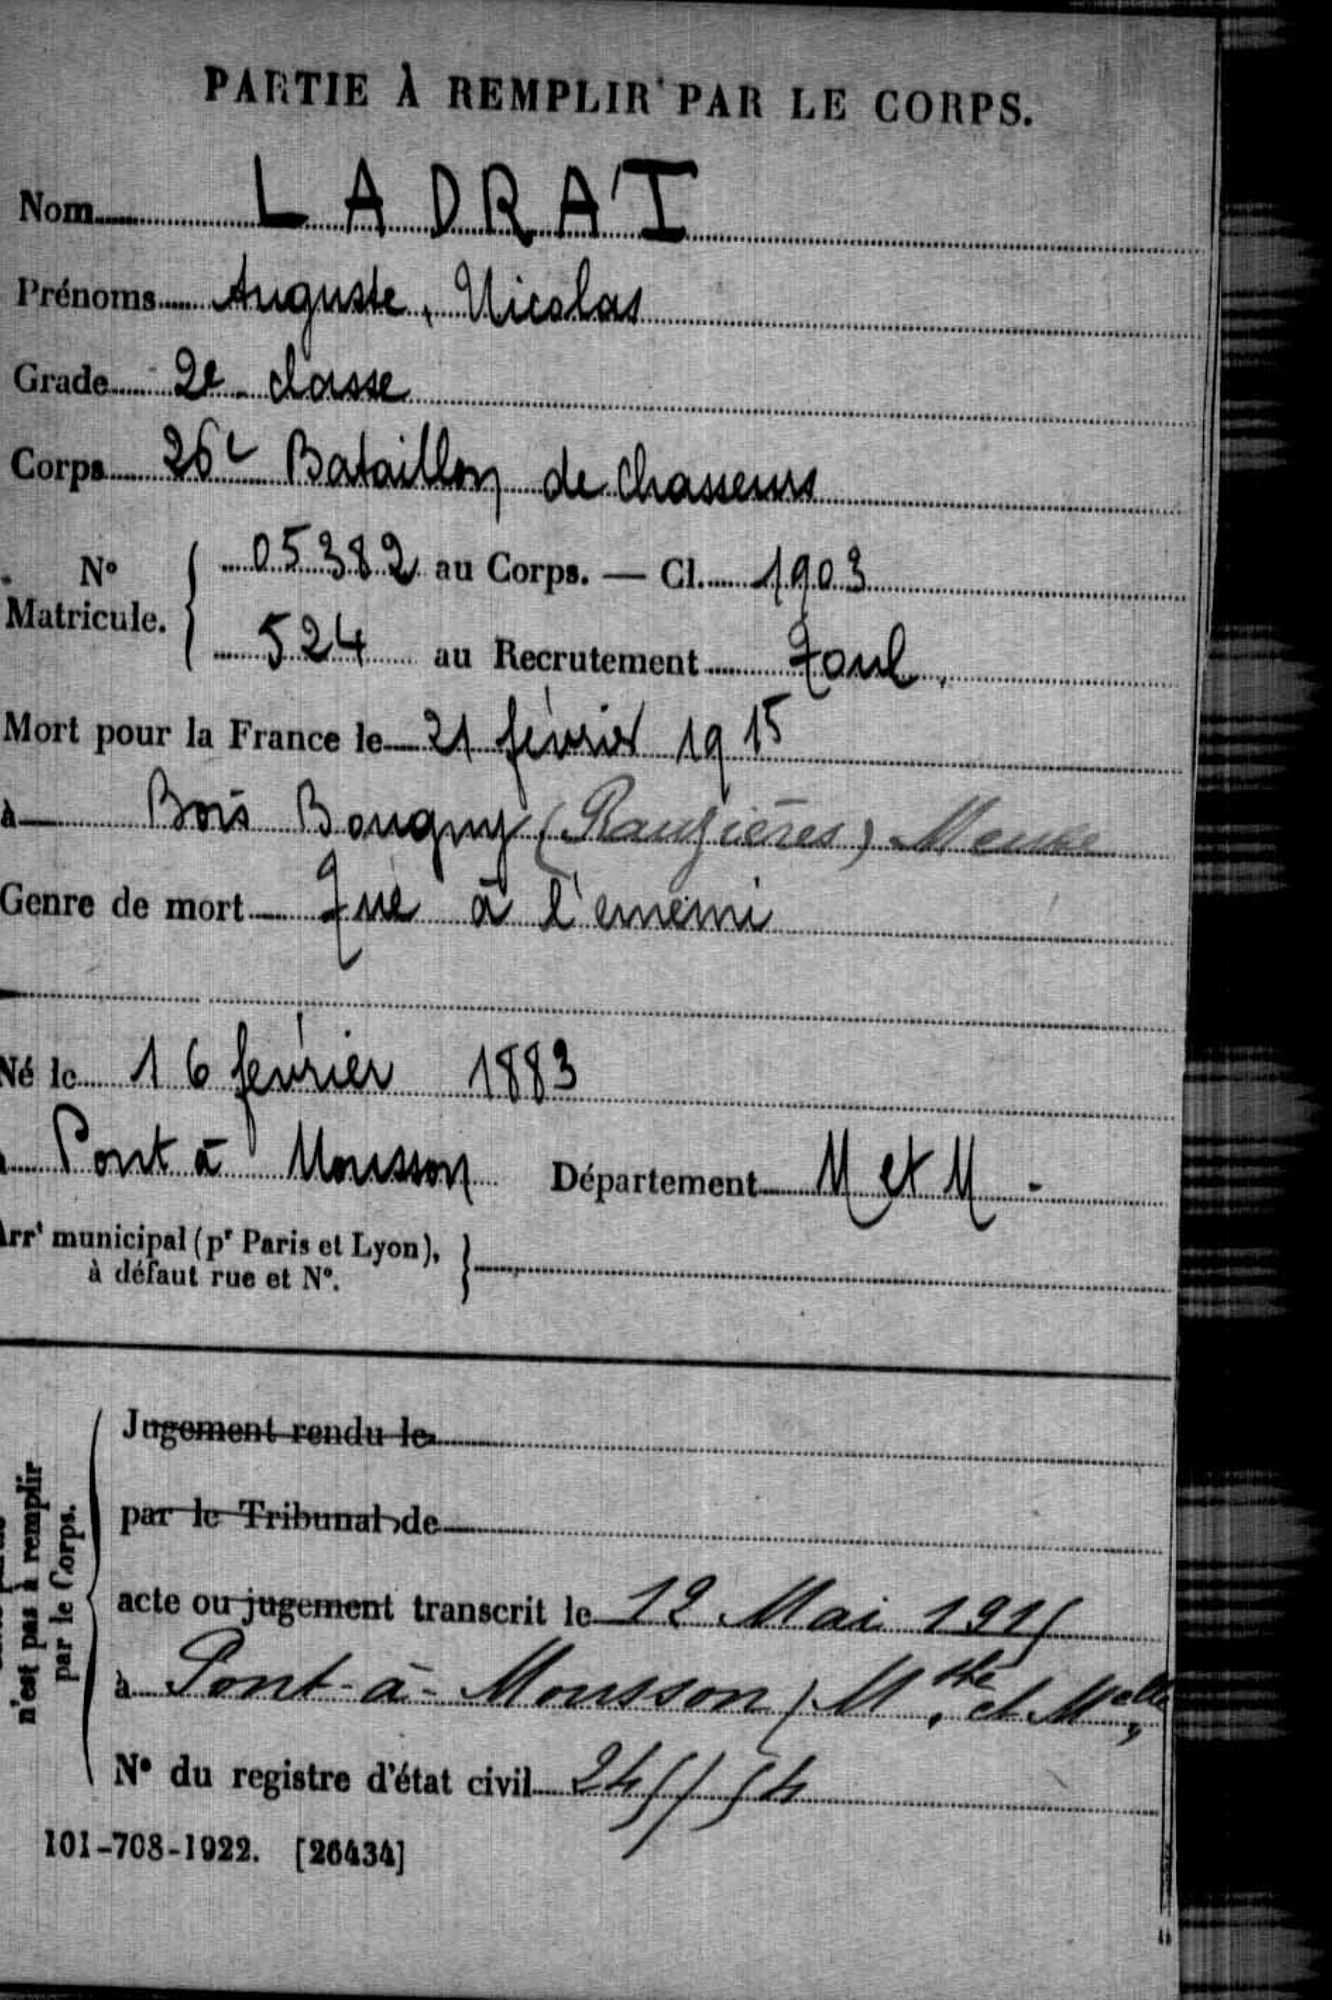 PARTIE À REMPLIR PAR LE CORPS.
Nom LADRAT
Prénoms Auguste, Nicolas
Grade 2e classe
Corps 26e Bataillon de Chasseurs
N° Matricule. { 05382 au Corps. — Cl. 1903
524 au Recrutement Toul.
Mort pour la France le 21 février 1915
à Bois Bougny (Rauzières) Meuse
Genre de mort Tué à l'ennemi
Né le 16 février 1883
Pont à Mousson Département M et M -
Arrt municipal (pr Paris et Lyon),
à défaut rue et N°.
Jugement rendu le
par le Tribunal de
acte ou jugement transcrit le 12 Mai 1915
à Pont-à-Mousson (Mthe et Melle)
N° du registre d'état civil 245/54
n'est pas à remplir
par le Corps.
101-708-1922. [26434]